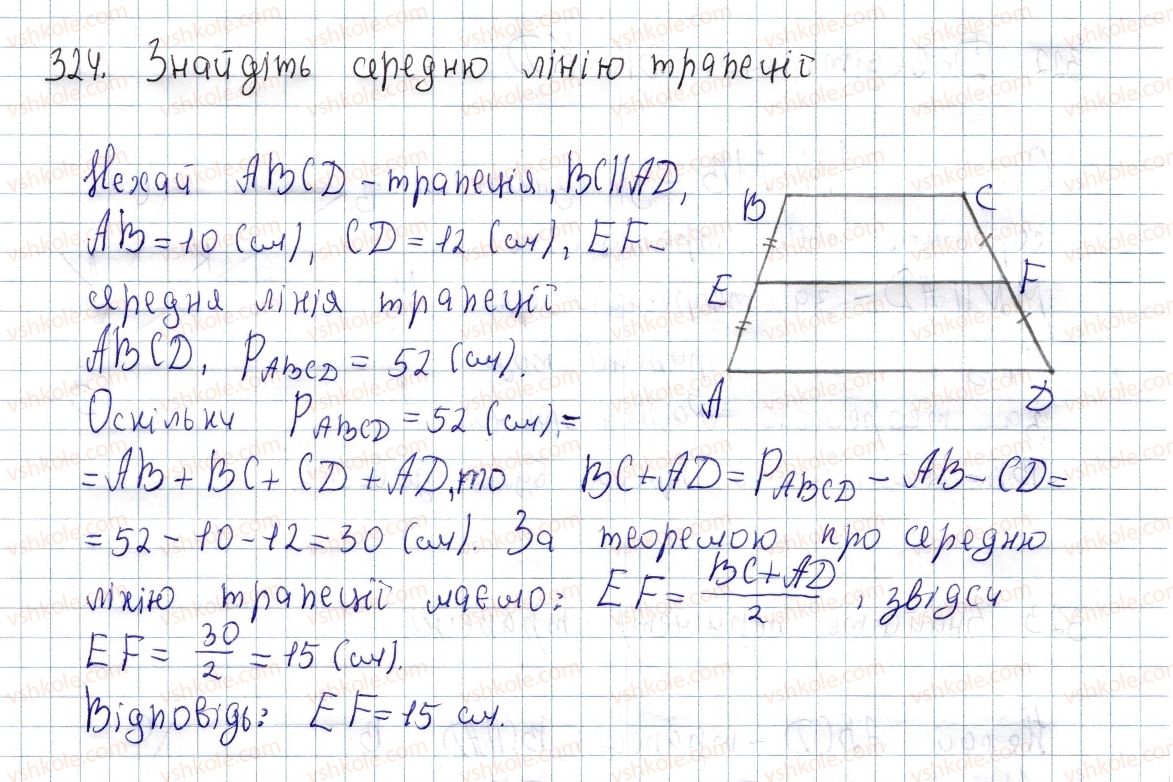 324. Знайдіть середню лінію трапеції
Нехай ABCD - трапеція, BC||AD,
AB = 10 (см), CD = 12 (см), EF -
середня лінія трапеції
ABCD, P_ABCD = 52 (см).
Оскільки P_ABCD = 52 (см) =
= AB + BC + CD + AD, то BC + AD = P_ABCD - AB - CD =
= 52 - 10 - 12 = 30 (см). За теоремою про середню
лінію трапеції маємо: EF = (BC + AD)/2, звідси
EF = 30/2 = 15 (см).
Відповідь: EF = 15 см.
B C
E F
A D
vshkole.com